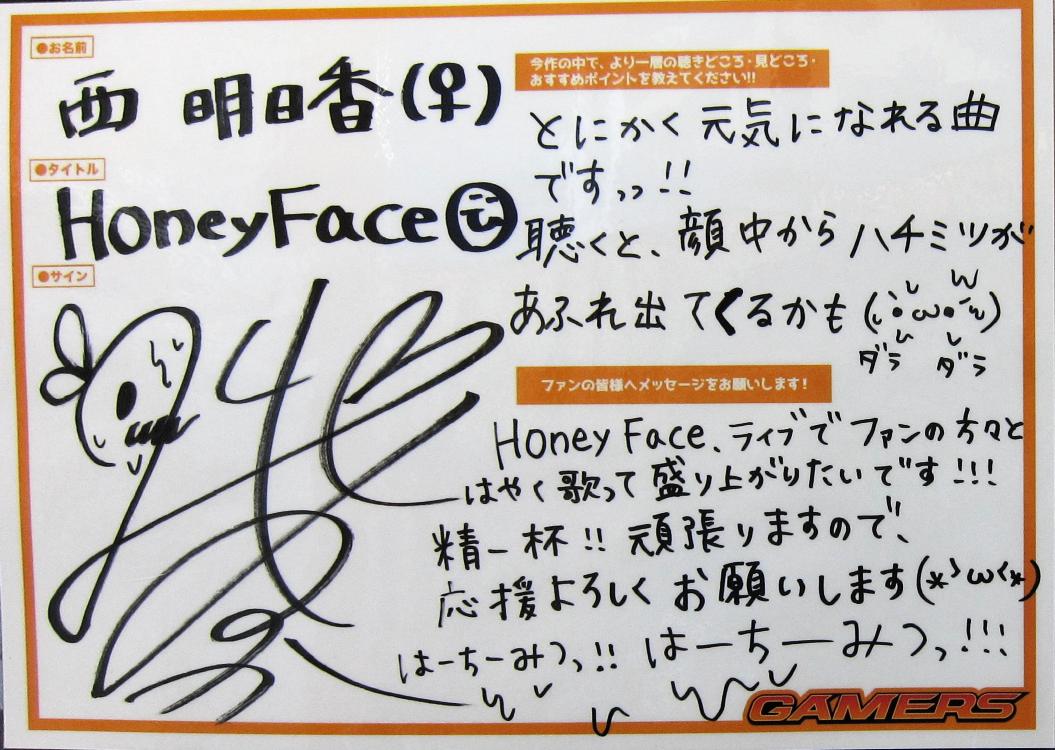 ●お名前
西 明日香(♀)
●タイトル
HoneyFace
●サイン
今作の中で、より一層の聴きどころ・見どころ・
おすすめポイントを教えてください!!
とにかく元気になれる曲
ですっっ!!
聴くと、顔中からハチミツが
あふれ出てくるかも(・ω・)
ダラ ダラ
ファンの皆様へメッセージをお願いします!
Honey Face、ライブでファンの方々と
はやく歌って盛り上がりたいです!!!
精一杯!! 頑張りますので、
応援よろしくお願いします(*>ω<*)
はーちーみつっ!! はーちーみつっ!!!
GAMERS